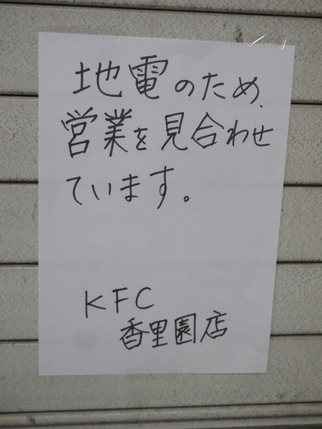 地電のため、
営業を見合わせ
ています。
KFC
香里園店